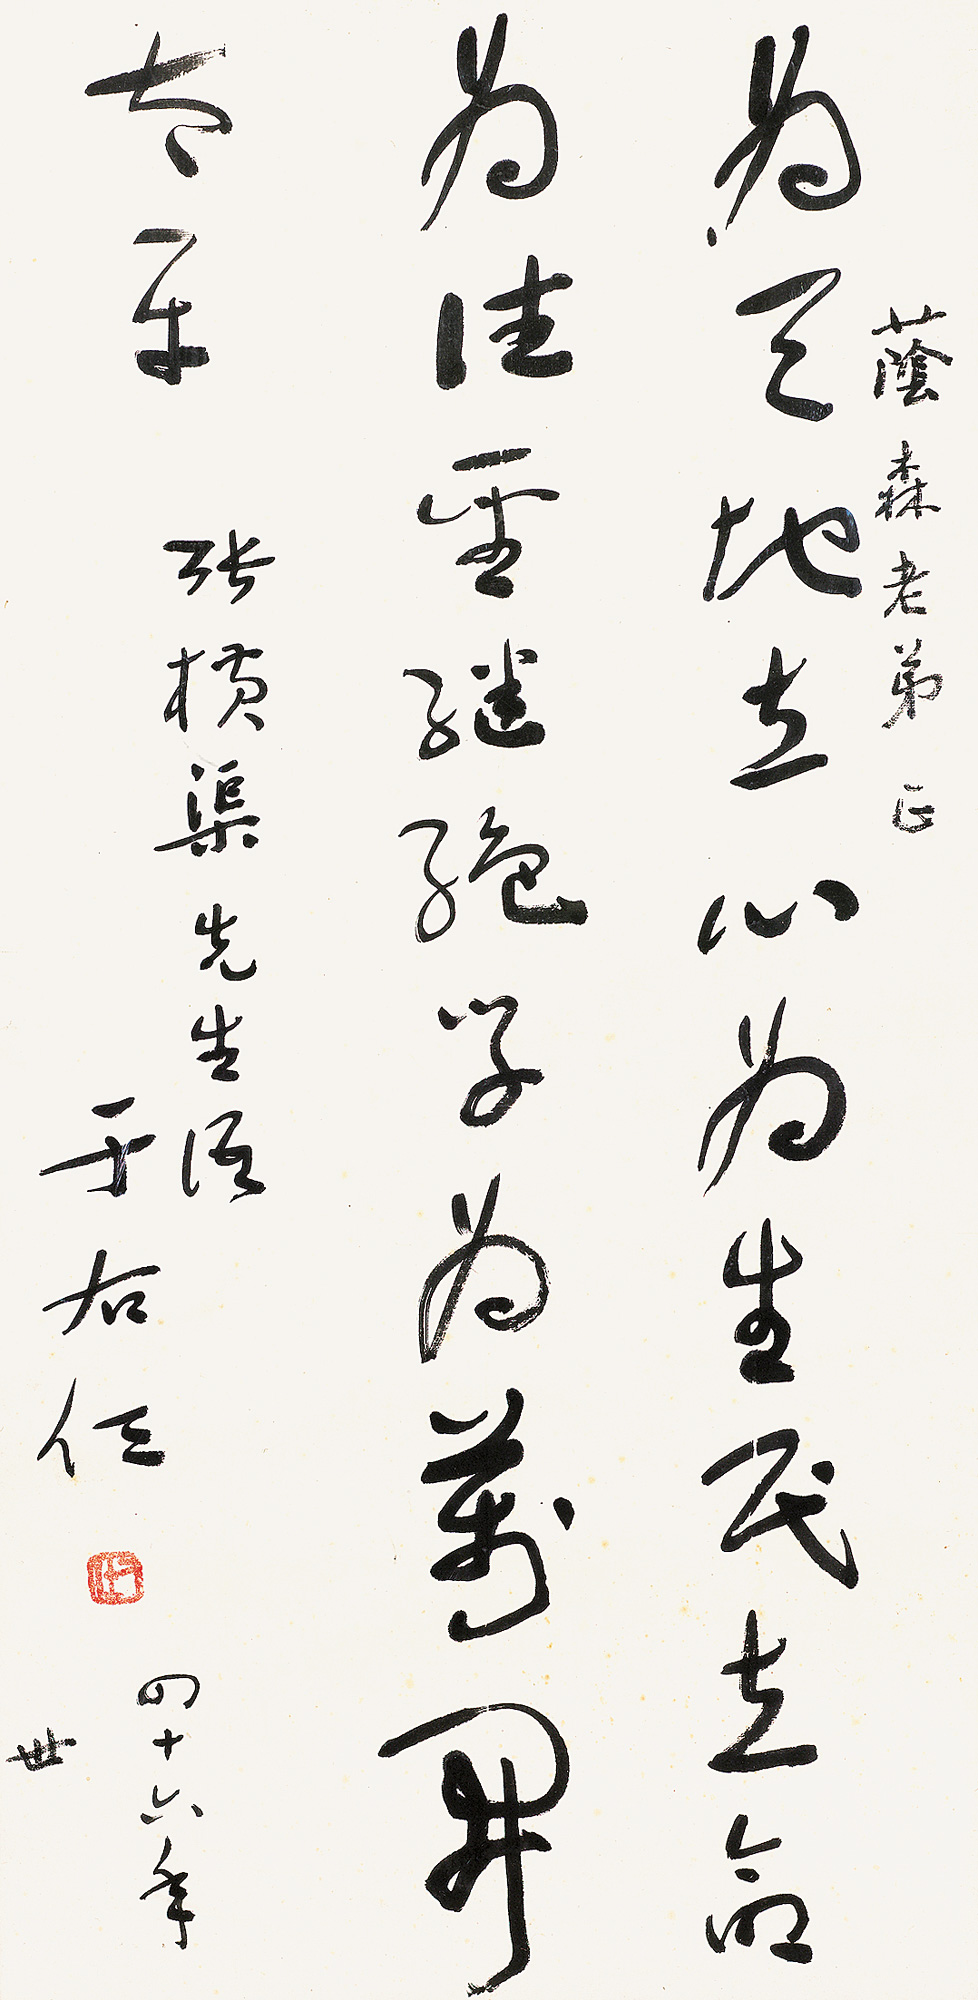 蔭森老弟 正
為天地立心為生民立命
為往聖繼絕學為萬開
太平
張橫渠先生語
于右任
四十六年
世